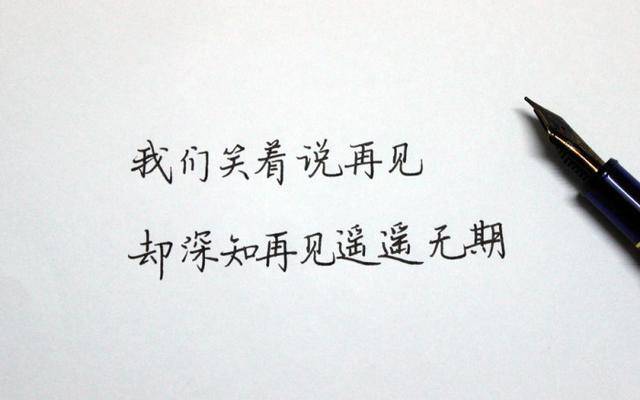 我们笑着说再见
却深知再见遥遥无期